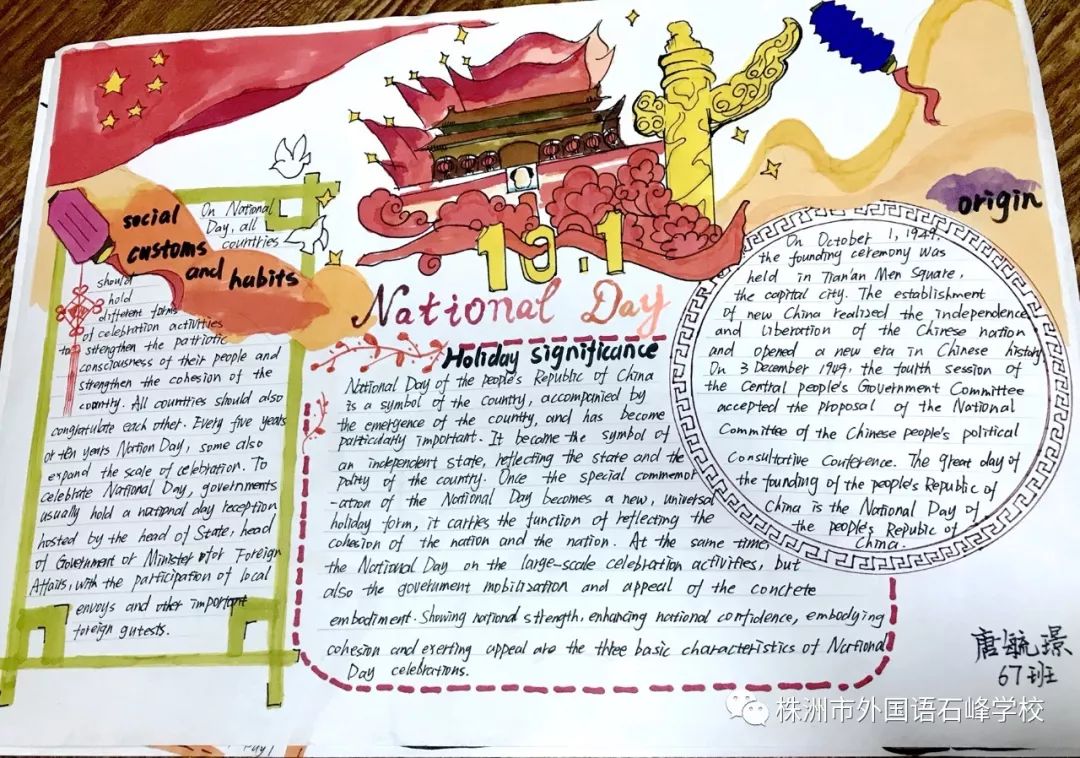 10.1
National Day
social
customs
and habits
On National
Day, all
countries
should
hold
different forms
of celebration activities
to strengthen the patriotic
consciousness of their people and
strengthen the cohesion of the
country. All countries should also
congratulate each other. Every five years
or ten years Nation Day, some also
expand the scale of celebration. To
celebrate National Day, governments
usually hold a national day reception
hosted by the head of State, head
of Government or Minister for Foreign
Affairs, with the participation of local
envoys and other important
foreign gutests.
Holiday significance
National Day of the people's Republic of China
is a symbol of the country, accompanied by
the emergence of the country, and has become
particularly important. It became the symbol of
an independent state, reflecting the state and the
polity of the country. Once the special commemor
-ation of the National Day becomes a new, universal
holiday form, it carries the function of reflecting the
cohesion of the nation and the nation. At the same time,
the National Day on the large-scale celebration activities, but
also the government mobilization and appeal of the concrete
embodiment. Showing national strength, enhancing national confidence, embodying
cohesion and exerting appeal are the three basic characteristics of National
Day celebrations.
origin
On October 1, 1949,
the founding ceremony was
held in Tian'an Men Square,
the capital city. The establishment
of new China realized the independence
and liberation of the Chinese nation
and opened a new era in Chinese history
On 3 December 1949, the fourth session of
the Central people's Government Committee
accepted the proposal of the National
Committee of the Chinese people's political
Consultative Conference. The great day of
the founding of the people's Republic of
China is the National Day of
the people's Repubic of
China.
唐毓璟
67班
株洲市外国语石峰学校